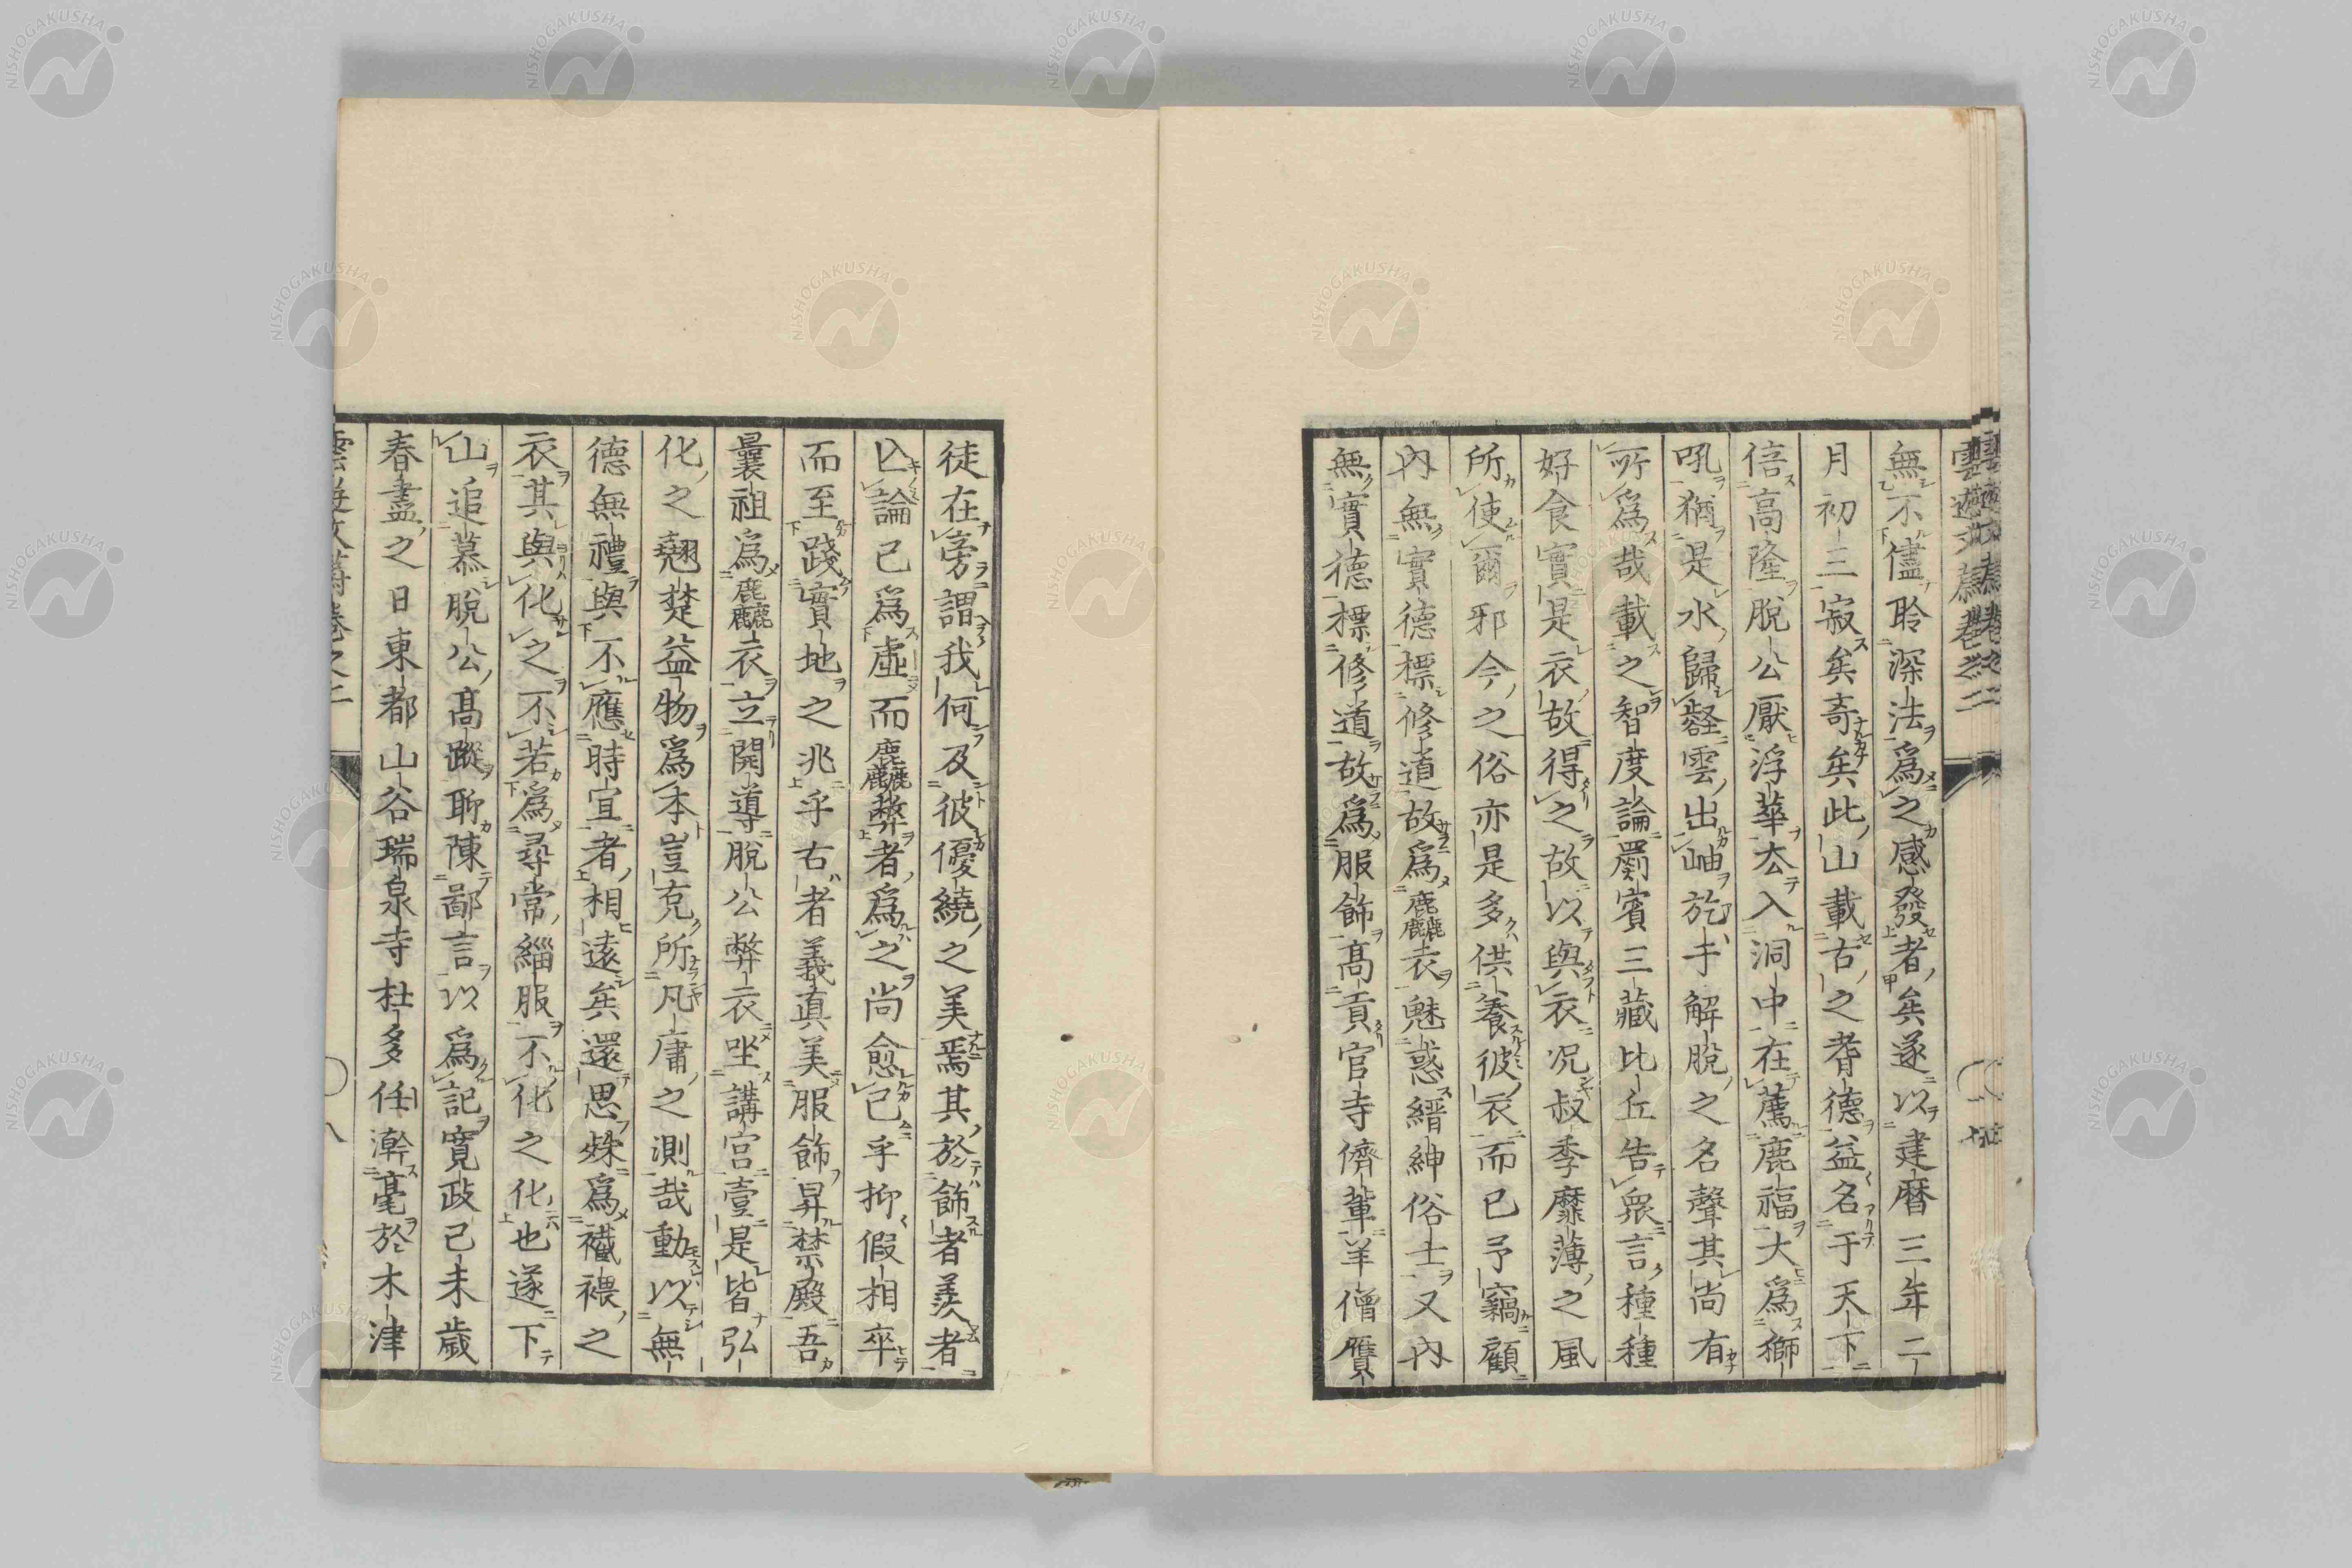 無不儘聆深法爲之感發者矣遂以建曆三年二
月初三寂矣奇矣此山載古之耆德益名于天下
信高隆脫公厭浮華厺入洞中在薦鹿福大爲獅
吼猶是水歸壑雲出岫於乎解脫之名聲其尚有
所爲哉載之智度論罽賓三藏比丘告衆言種種
好食實是衣故得之故以與衣況叔季靡薄之風
所使爾邪今之俗亦是多供養彼衣而已予竊顧
內無實德標修道故爲麤衣魅惑縉紳俗士又內
無實德標修道故爲服飾高貢官寺儕輩羊僧贋
徒在旁謂我何及彼優繞之美焉其於飾者羨者
亾論已爲虛而麤弊者爲之尚愈已乎抑假相卒
而至踐實地之兆乎右者義眞美服飾昇禁殿吾
曩祖爲麤衣立開導脫公弊衣坐講宮壹是皆弘
化之翹楚益物爲本豈克所凡庸之測哉動以無
德無禮與不應時宜者相遠矣還思殊爲襶褦之
衣其與化之不若爲尋常緇服不化之化也遂下
山追慕脫公高蹤聊陳鄙言以爲記寬政己未歲
春盡之日東都山谷瑞泉寺杜多任澣毫於木津
八
NISHOGAKUSHA